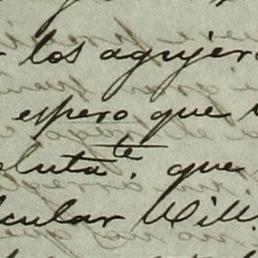 los agujer
espero que
luta te. que
cular Will